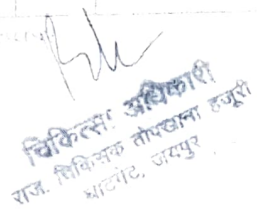 चिकित्सा अधिकारी
राज. चिकित्सक तोपखाना हजूरी
घाटगेट, जयपुर